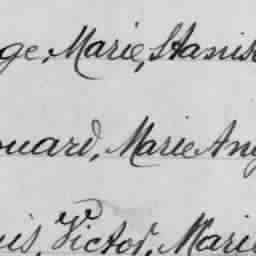 ge, Marie, Stanis
ouard, Marie Ang
uis, Victor, Marie